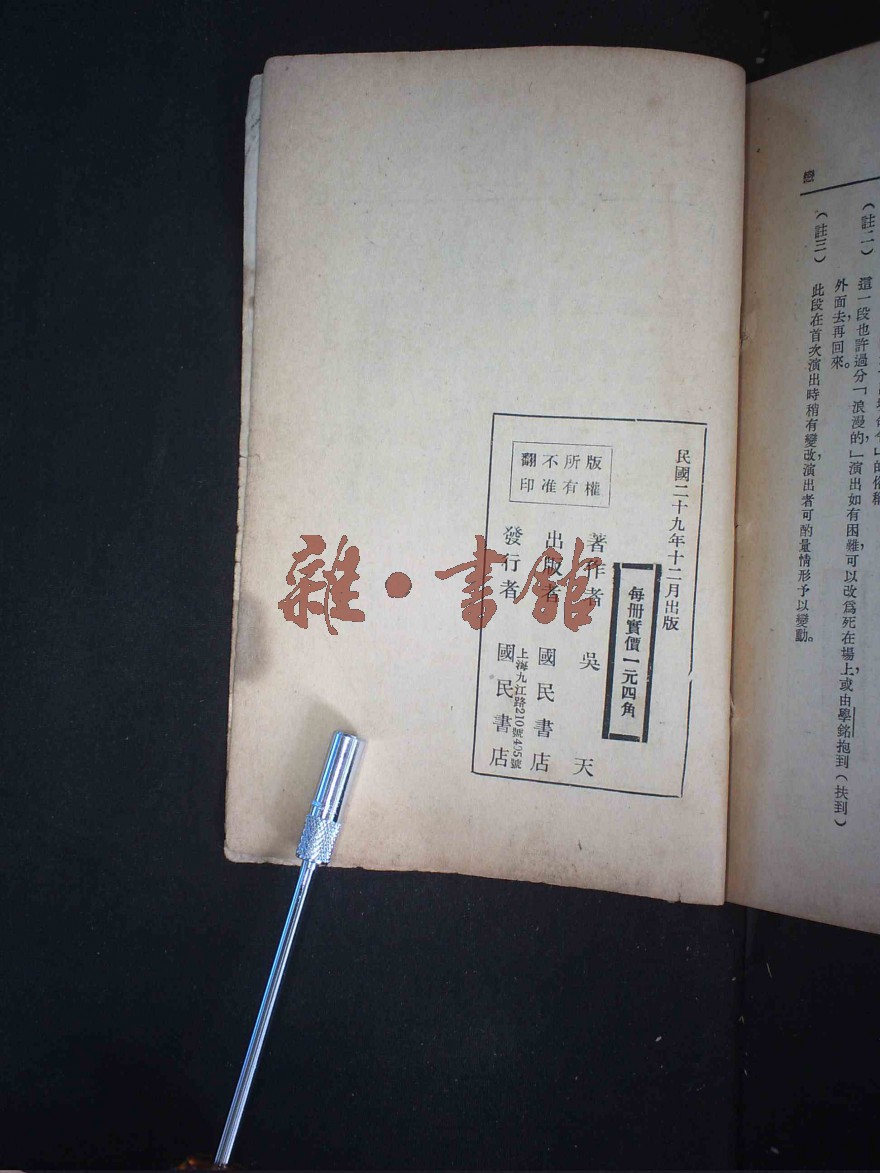 (註二) 這一段也許過分「浪漫的」演出如有困難,可以改爲死在場上,或由學銘抱到(扶到)
外面去再回來。
(註三) 此段在首次演出時稍有變改,演出者可酌量情形予以變動。
民國二十九年十二月出版
每冊實價一元四角
版權
所有
不准
翻印
著作者 吳天
出版者 國民書店
上海九江路210號405號
發行者 國民書店
雜·書館